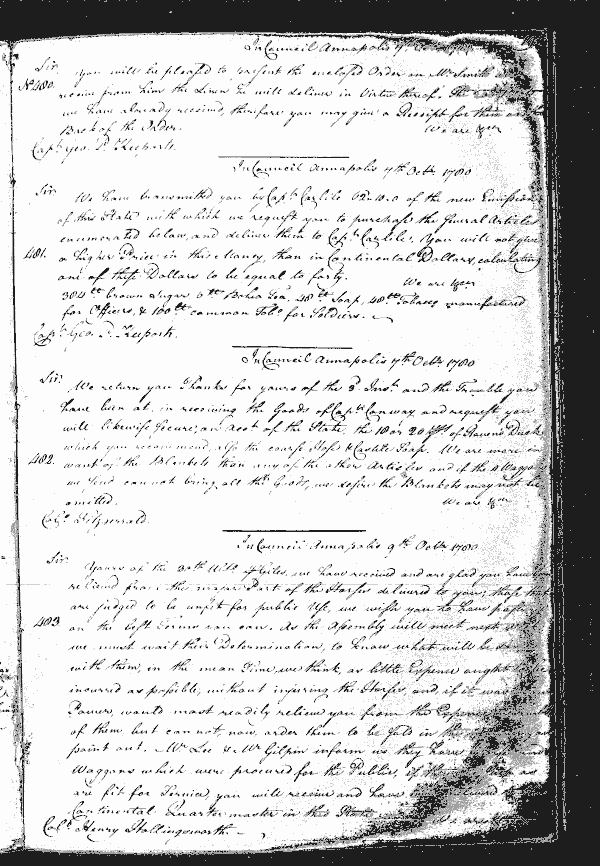 In Council Annapolis 7th Octr
Sir
No 480. You will be pleased to present the enclosed Order on Mr Smith
receive from him the Linen he will deliver in Virtue thereof. The
we have already received, therefore you may give a Receipt for them on the
Back of the Order. We are &ca
Capt. Geo. P. Keeports.
In Council Annapolis 7th Octr 1780
Sir
We have transmitted you by Capt. Carlile of the new Emissions
of this State with which we request you to purchase the several Articles
enumerated below, and deliver them to Capt. Carlile. You will not give
481. a higher Price in this Money, than in Continental Dollars, calculating
one of these Dollars to be equal to forty. We are &ca
384 lb brown Sugar 6 lb Bohea Tea, 48 lb Soap, 48 lb Tobacco manufactured
for Officers, & 100 lb common Tobo for Soldiers.
Capt. Geo. P. Keeports.
In Council Annapolis 7th Octr 1780
Sir.
We return you Thanks for yours of the 3d Inst. and the Trouble you
have been at, in receiving the Goods of Capt. Conway, and request you
will likewise secure, on Acct of the State, the 18 or 20 ps. of Ravens Duck
which you recommend, also the coarse Hose & Castile Soap. We are more in
482. want of the Blankets than any of the other Articles and if the 4 Waggons
we send cannot bring all the Goods, we desire the Blankets may not be
omitted. We are &ca
Colo. Fitzgerald.
In Council Annapolis 9th Octr 1780
Sir
Yours of the 30th Ulto. of Giles, we have received and are glad you have been
relieved from the major Part of the Horses delivered to you; those that
are judged to be unfit for public Use, we wish you to have
483 on the best Terms you can. As the Assembly will meet next
we must wait their Determination, to know what will be done
with them, in the mean Time, we think, as little Expence ought
incurred as possible, without injuring the Horses, and, if it was
Power, would most readily relieve you from the Expence
of them but can not, now, order them to be sold in the
point out. Mr Lee & Mr Gilpin inform us they have
Waggons which were procured for the Public, if
are fit for Service, you will receive and have
Continental Quarter master in this State We are &ca
Colo. Henry Hollingsworth.